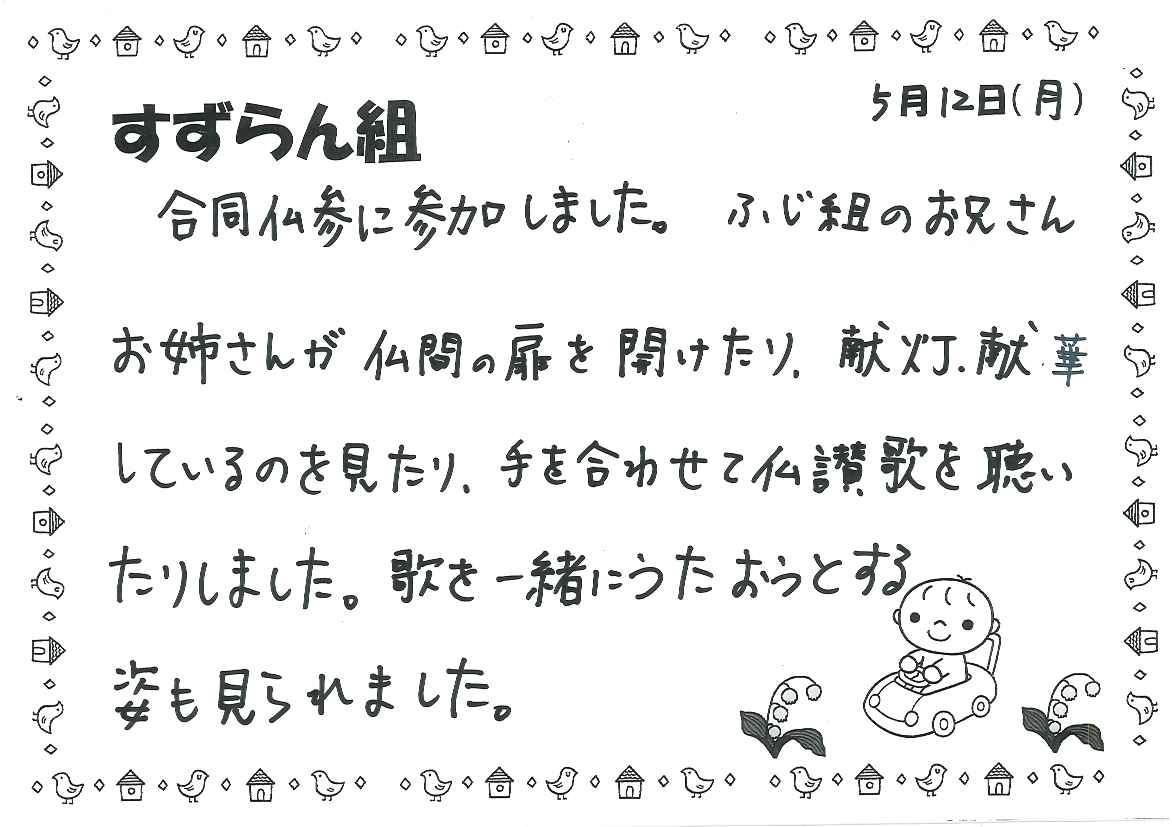 5月12日(月)
すずらん組
合同仏参に参加しました。 ふじ組のお兄さん
お姉さんが仏間の扉を開けたり、献灯、献華
しているのを見たり、手を合わせて仏讃歌を聴い
たりしました。歌を一緒にうたおうとする
姿も見られました。